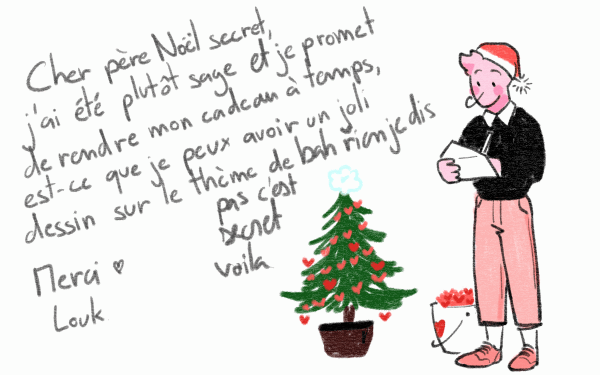 Cher père Noël secret,
j'ai été plutôt sage et je promet
de rendre mon cadeau à temps,
est-ce que je peux avoir un joli
dessin sur le thème de bah rien je dis
pas c'est
secret
voila
Merci ♡
Louk